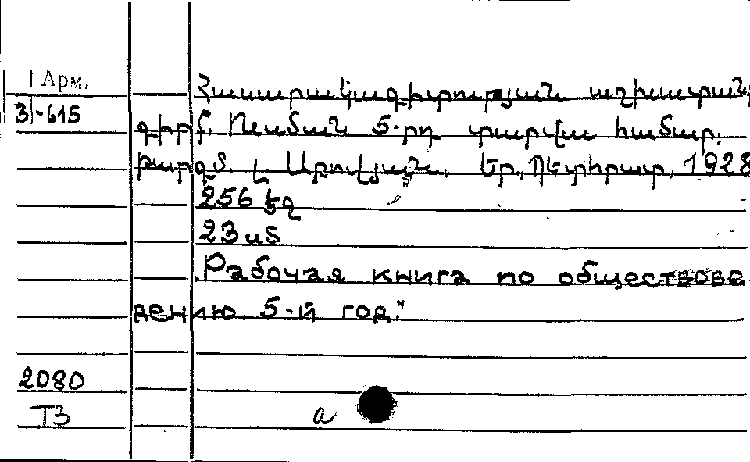 Арм.
3-615
Հասարակագիտության աշխատան
գիրք. Ուսման 5-րդ տարվա համար.
թարգմ. Լ. Աբովյան. Եր., Պետհրատ, 1928
256 էջ
23 սմ
„Рабочая книга по обществове
дению 5-й год."
2080
ТЗ
a